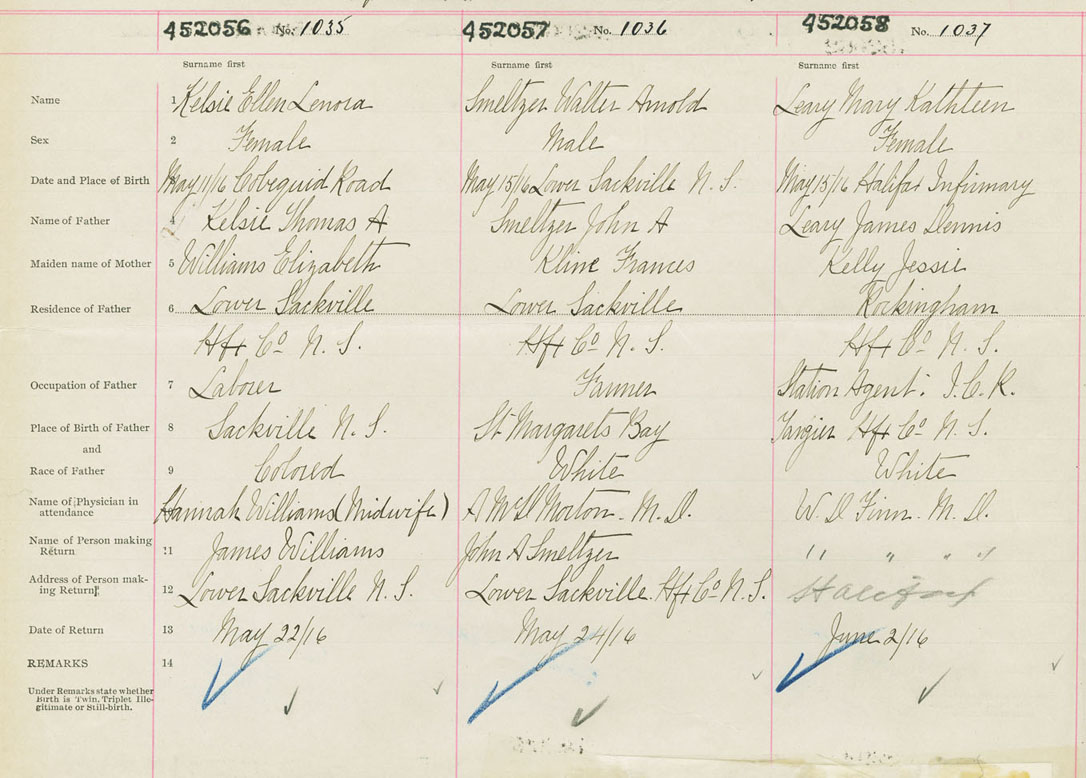 452056 No. 1035 452057 No. 1036 452058 No. 1037
Surname first Surname first Surname first
Name 1 Kelsie Ellen Lenora Smeltzer Walter Arnold Leary Mary Kathleen
Sex 2 Female Male Female
Date and Place of Birth May 11/16 Cobequid Road May 15/16 Lower Sackville N. S. May 15/16 Halifax Infirmary
Name of Father 4 Kelsie Thomas A Smeltzer John A Leary James Dennis
Maiden name of Mother 5 Williams Elizabeth Kline Frances Kelly Jessie
Residence of Father 6 Lower Sackville Lower Sackville Rockingham
Hfx Co N. S. Hfx Co N. S. Hfx Co N. S.
Occupation of Father 7 Laborer Farmer Station Agent. I. C. R.
Place of Birth of Father 8 Sackville N. S. St Margarets Bay Tangier Hfx Co N. S.
and
Race of Father 9 Colored White White
Name of Physician in
attendance Hannah Williams (Midwife) A McD Morton. M. D. W. D Finn. M. D.
Name of Person making
Return 11 James Williams John A Smeltzer " " " "
Address of Person mak-
ing Return 12 Lower Sackville N. S. Lower Sackville. Hfx Co N. S. Halifax
Date of Return 13 May 22/16 May 24/16 June 2/16
REMARKS 14
Under Remarks state whether
Birth is Twin, Triplet Ille-
gitimate or Still-birth.